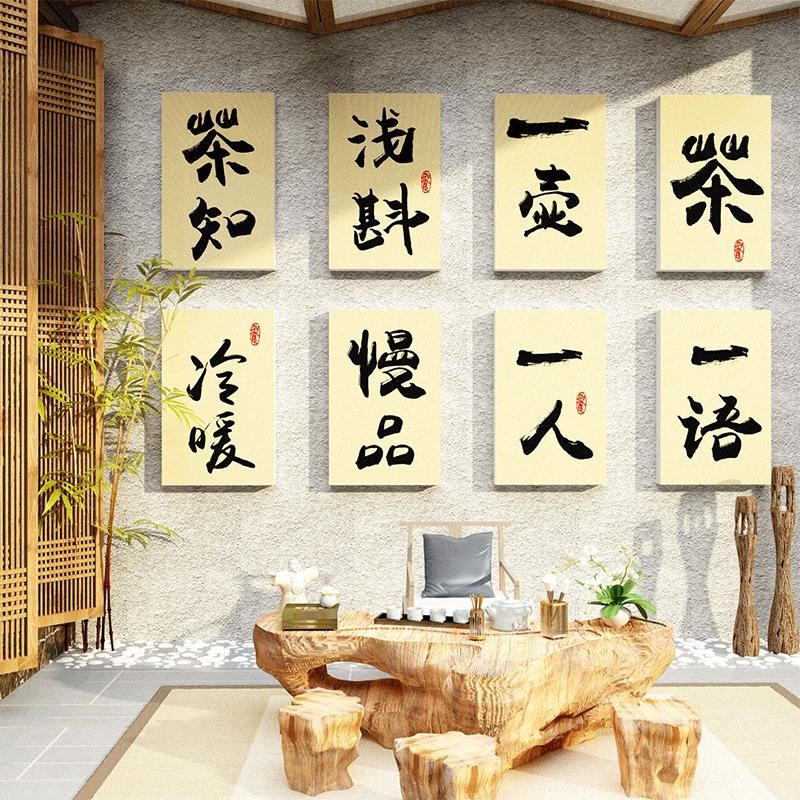 茶知
浅斟
一壶
茶
冷暖
慢品
一人
一语